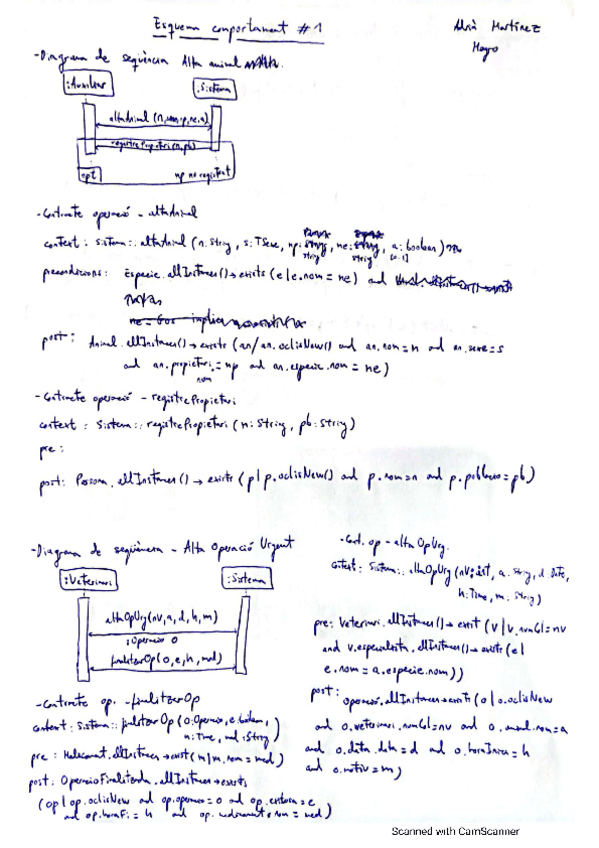 Esquema comportament #1
Adrià Martínez
Mayo
-Diagrama de seqüència Alta animal
:Auxiliar
:Sistema
altaAnimal (n, s, np, ne, a)
registrePropietari(n, pb)
opt
np no registrat
-Contracte operació - altaAnimal
context : Sistema:: altaAnimal (n: String, s: TSexe, np: String, ne: String, a: boolean)
[0..1]
precondicions: Especie.allInstances()→exists (e|e.nom = ne) and
ne = Gos implica
post: Animal.allInstances()→exists (an/ an.oclIsNew() and an.nom=n and an.sexe=s
and an.propietari.nom = np and an.especie.nom = ne)
-Contracte operació - registrePropietari
context : Sistema:: registrePropietari (n: String, pb: String)
pre:
post: Persona.allInstances()→exists (p|p.oclIsNew() and p.nom=n and p.poblacio=pb)
-Diagrama de seqüència - Alta Operació Urgent
:Veterinari
:Sistema
altaOpUrg(nv,a,d,h,m)
:Operacio o
finalitzarOp(o,e,h,med)
-Contracte op. -finalitzarOp
context: Sistema:: finalitzarOp (o:Operacio, e:boolean,
h:Time, med:String)
pre: Medicament.allInstances→exist(m|m.nom=med)
post: OperacioFinalitzada.allInstances→exists
(op|op.oclIsNew and op.operacio=o and op.exitosa=e
and op.horaFi=h and op.medicament.nom=med)
-Cont. op - altaOpUrg.
context: Sistema:: altaOpUrg (nv:int, a:String, d:Date,
h:Time, m:String)
pre: Veterinari.allInstances()→exist (v|v.numCol=nv
and v.especialista.allInstances()→exists(e|
e.nom=a.especie.nom))
post: operació.allInstances→exists (o|o.oclIsNew
and o.veterinari.numCol=nv and o.animal.nom=a
and o.data.data=d and o.horaInici=h
and o.motiu=m)
Scanned with CamScanner